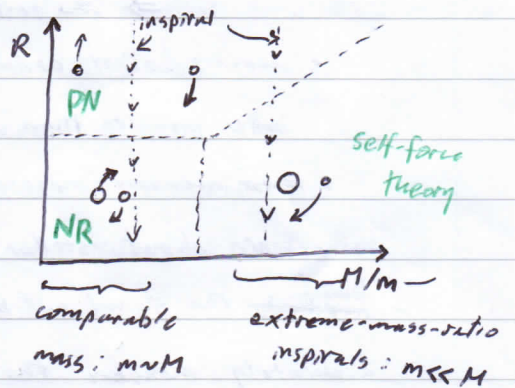 inspiral
R
PN
self-force
theory
NR
M/m
comparable
mass: m~M
extreme-mass-ratio
inspirals: m<<M